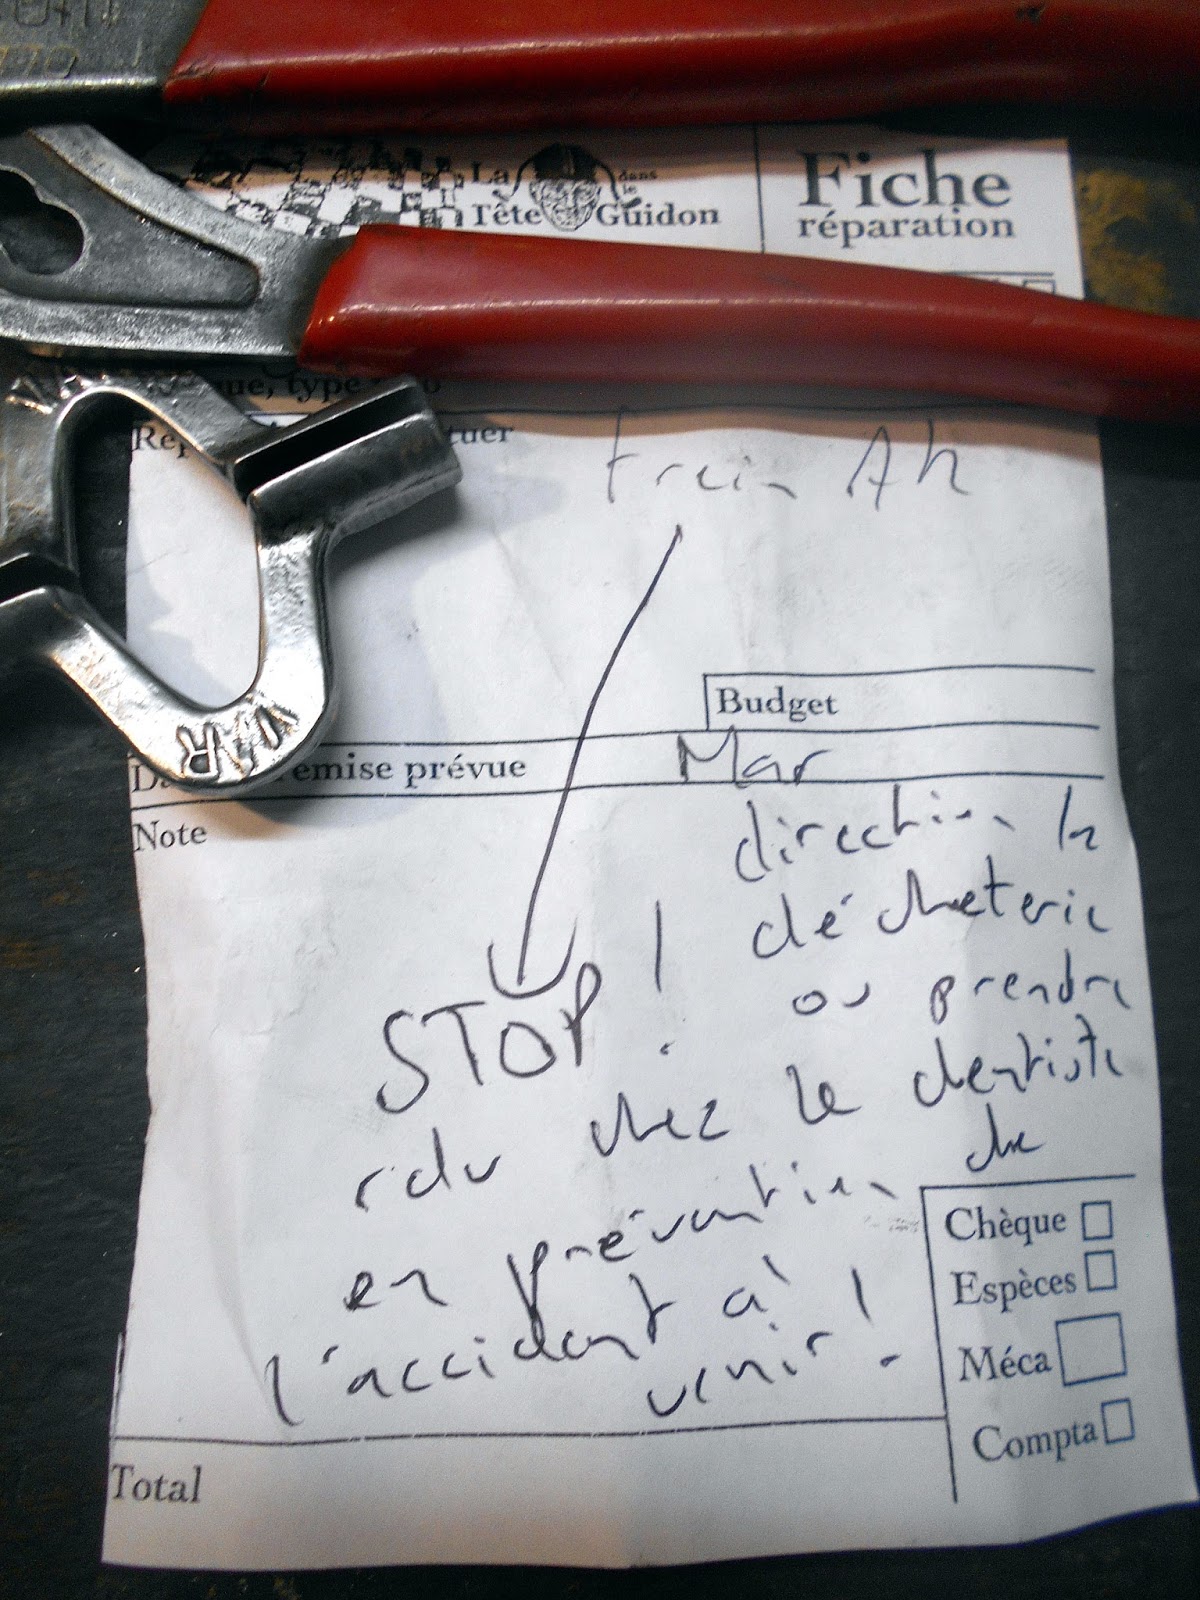 La Tête dans le Guidon
Fiche
réparation
type
tuer
frein AR
Budget
remise prévue Mar
Note
direction la
décheterie
STOP ! ou prendre
rdv chez le dentiste
en prévention de
l'accident à
venir !
Chèque
Espèces
Méca
Compta
Total
VAR